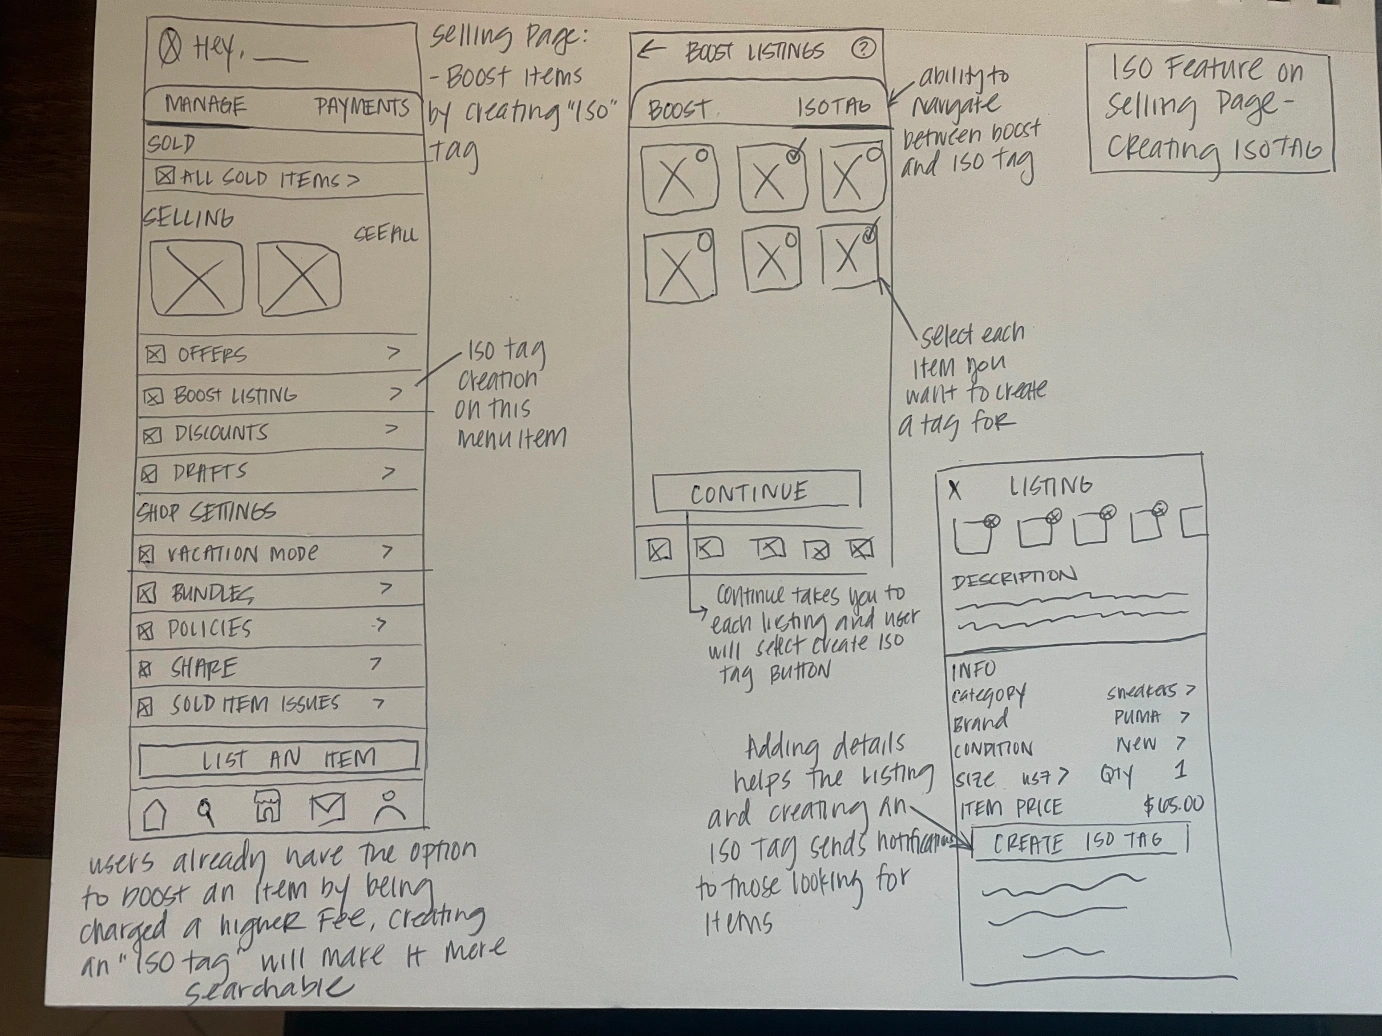 Hey, ___
MANAGE PAYMENTS
SOLD
ALL SOLD ITEMS >
SELLING
SEE ALL
OFFERS >
BOOST LISTING >
DISCOUNTS >
DRAFTS >
SHOP SETTINGS
VACATION MODE >
BUNDLES >
POLICIES >
SHARE >
SOLD ITEM ISSUES >
LIST AN ITEM
users already have the option
to boost an item by being
charged a higher Fee, creating
an "ISO tag" will make it more
searchable
Selling Page:
- Boost Items
by creating "ISO"
tag
ISO tag
creation
on this
menu item
← BOOST LISTINGS ?
BOOST ISO TAG
CONTINUE
ability to
navigate
between boost
and ISO tag
select each
item you
want to create
a tag for
continue takes you to
each listing and user
will select create ISO
tag BUTTON
ISO Feature on
Selling Page -
Creating ISO TAG
X LISTING
DESCRIPTION
INFO
Category sneakers >
Brand PUMA >
CONDITION New >
SIZE US7 > QTY 1
ITEM PRICE $65.00
CREATE ISO TAG
Adding details
helps the listing
and creating an
ISO tag sends notifications
to those looking for
items